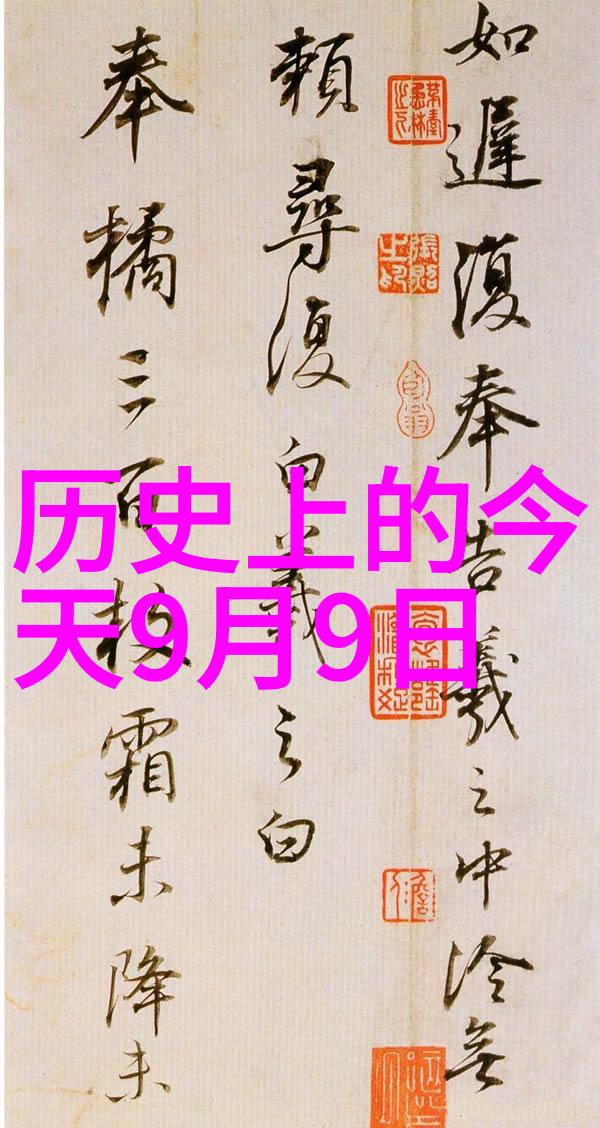 历史上的今
天9月9日
如遲復奉告羲之中冷無
賴尋復白羲之白
奉橘三百枚霜未降未